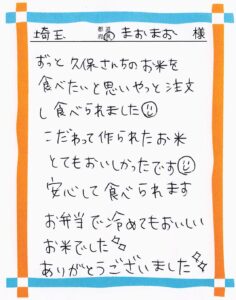 埼玉 都道府県 まおまお 様
ずっと久保さんちのお米を
食べたいと思いやっと注文
し食べられました
こだわって作られたお米
とてもおいしかったです
安心して食べられます
お弁当で冷めてもおいしい
お米でした
ありがとうございました